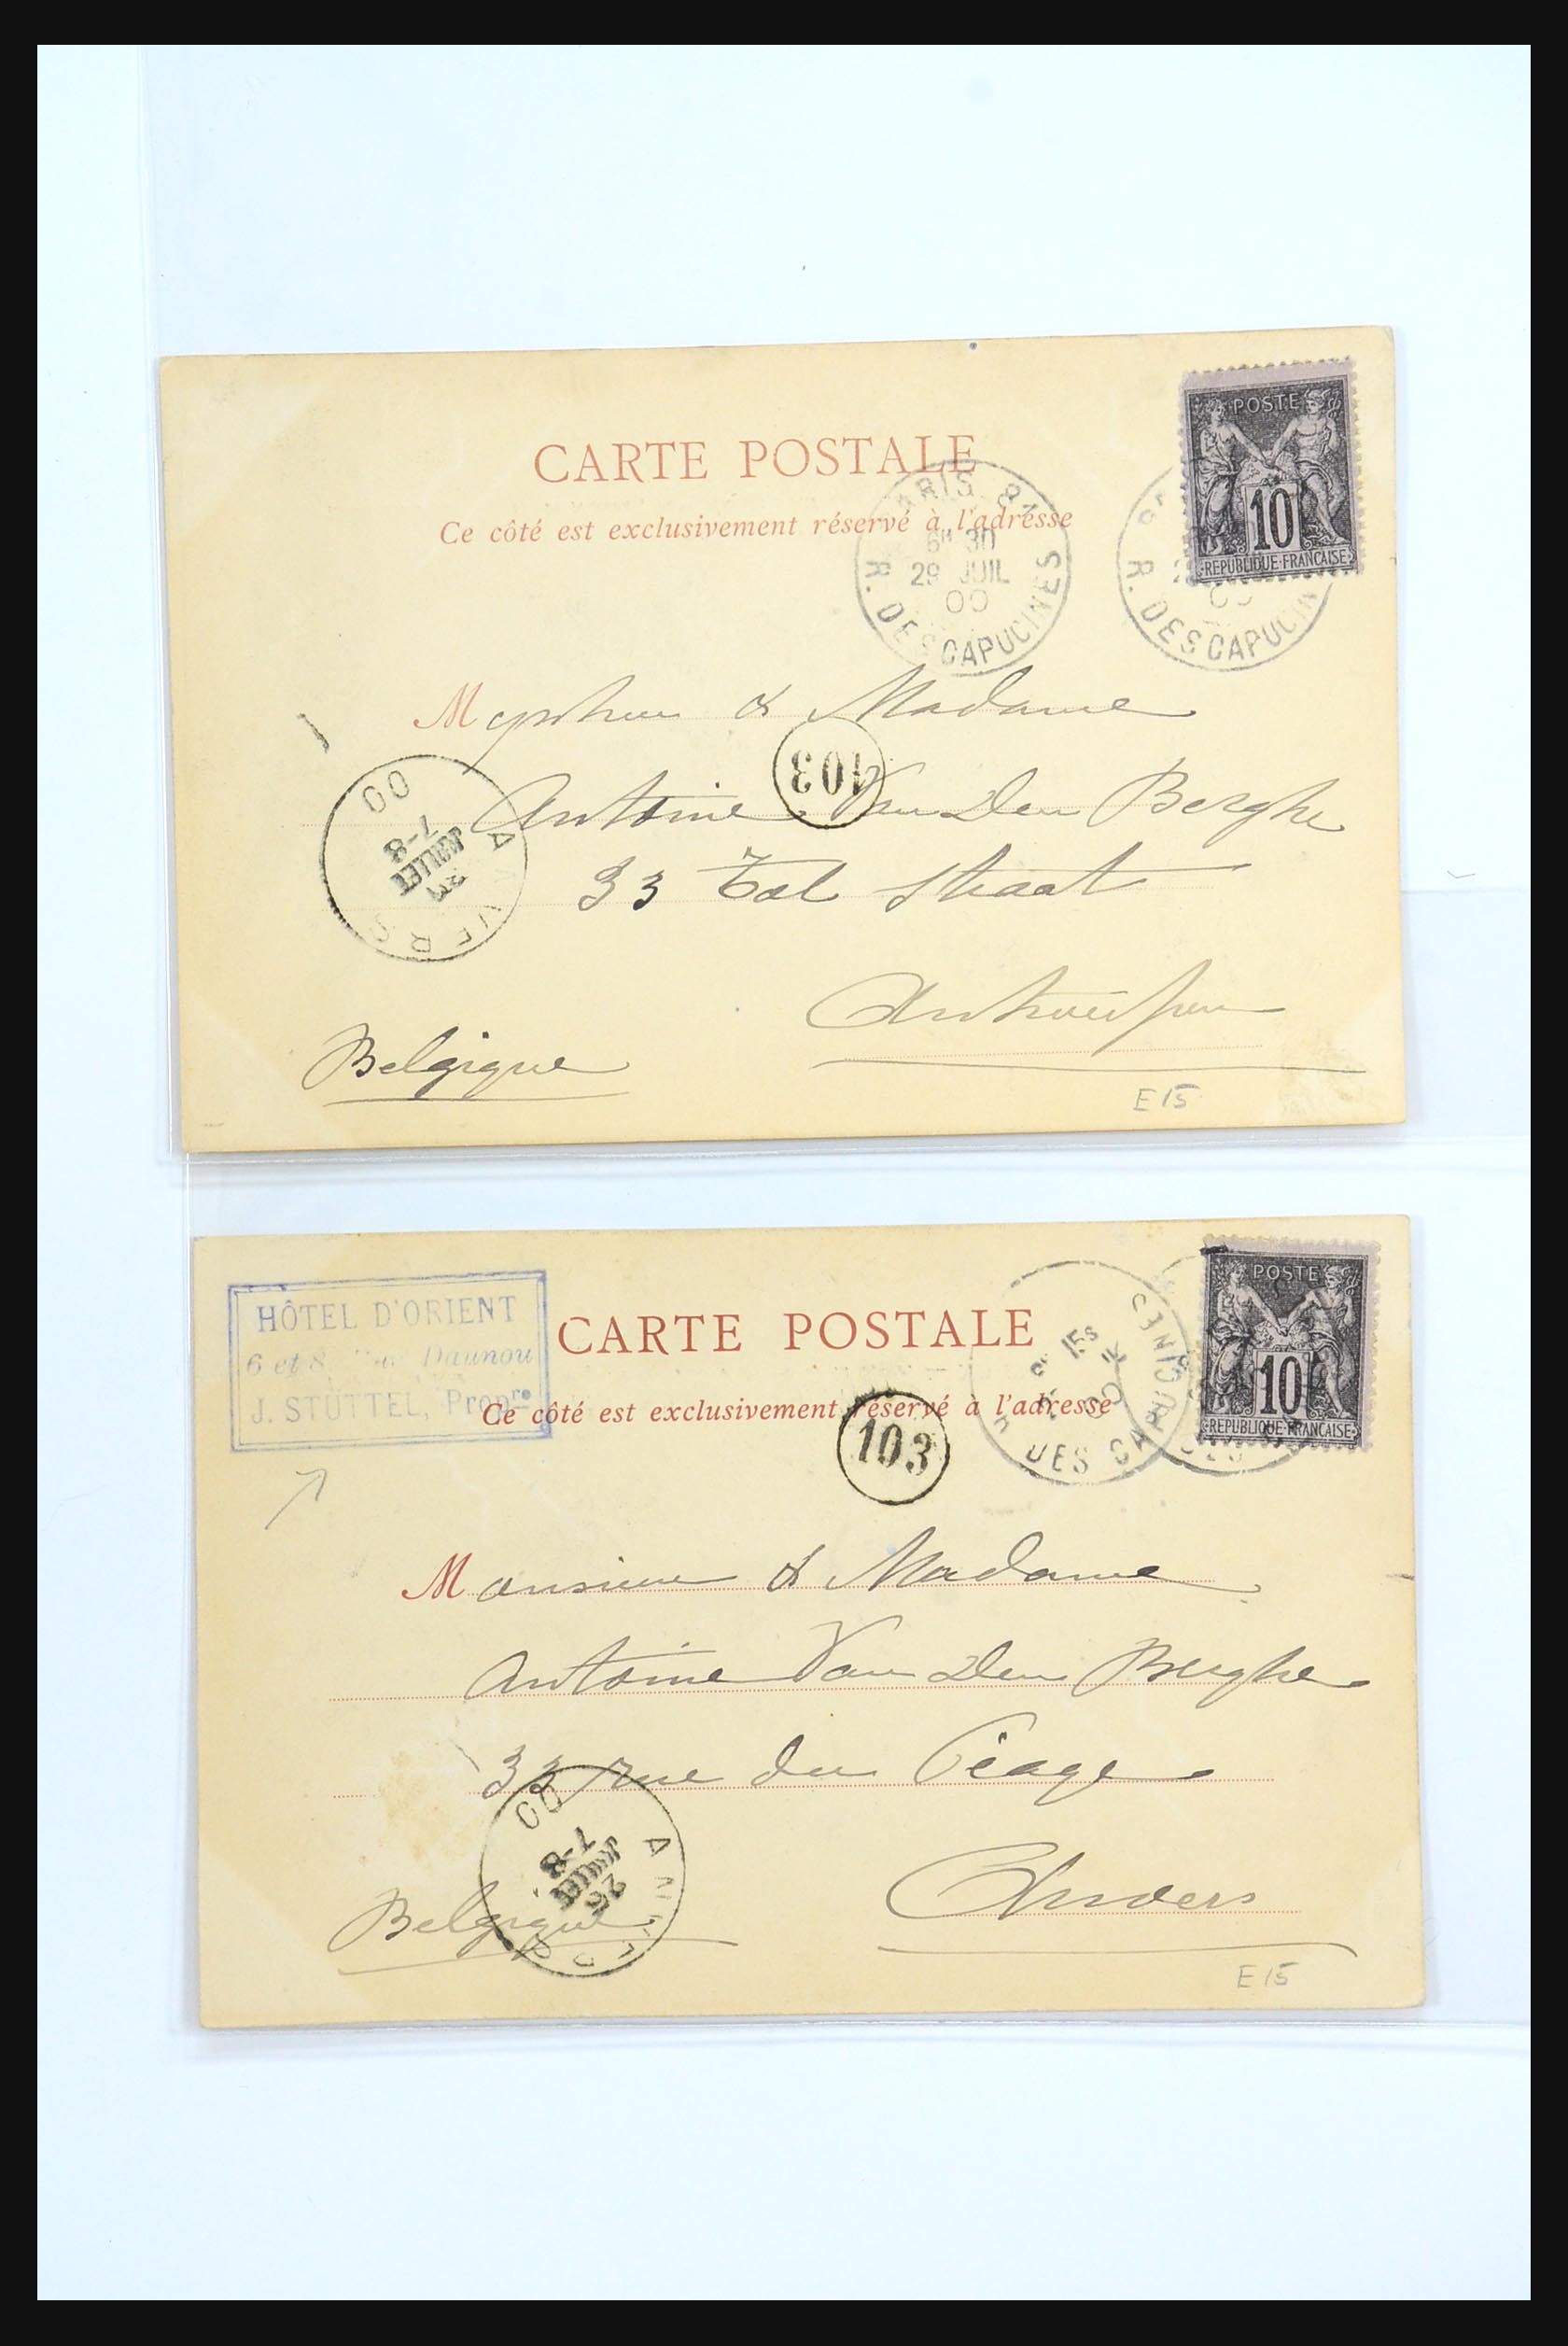 CARTE POSTALE
Ce côté est exclusivement réservé à l'adresse
POSTE
10
REPUBLIQUE FRANÇAISE
PARIS 81
6H 30
29 JUIL
00
R. DES CAPUCINES
R. DES CAPUCIN
& Madame
103
Antoine Van Den Berghe
33 Tol Straat
Antwerpen
Belgique
ANVERS
JUILLET
7-8
00
E 15
HÔTEL D'ORIENT
6 et 8, Rue Daunou
J. STÜTTEL, Propre
CARTE POSTALE
Ce côté est exclusivement réservé à l'adresse
POSTE
10
REPUBLIQUE FRANÇAISE
DES CAPUCINES
103
Monsieur & Madame
Antoine Van Den Berghe
33 rue du Péage
Anvers
Belgique
26
JUILLET
7-8
00
E 15